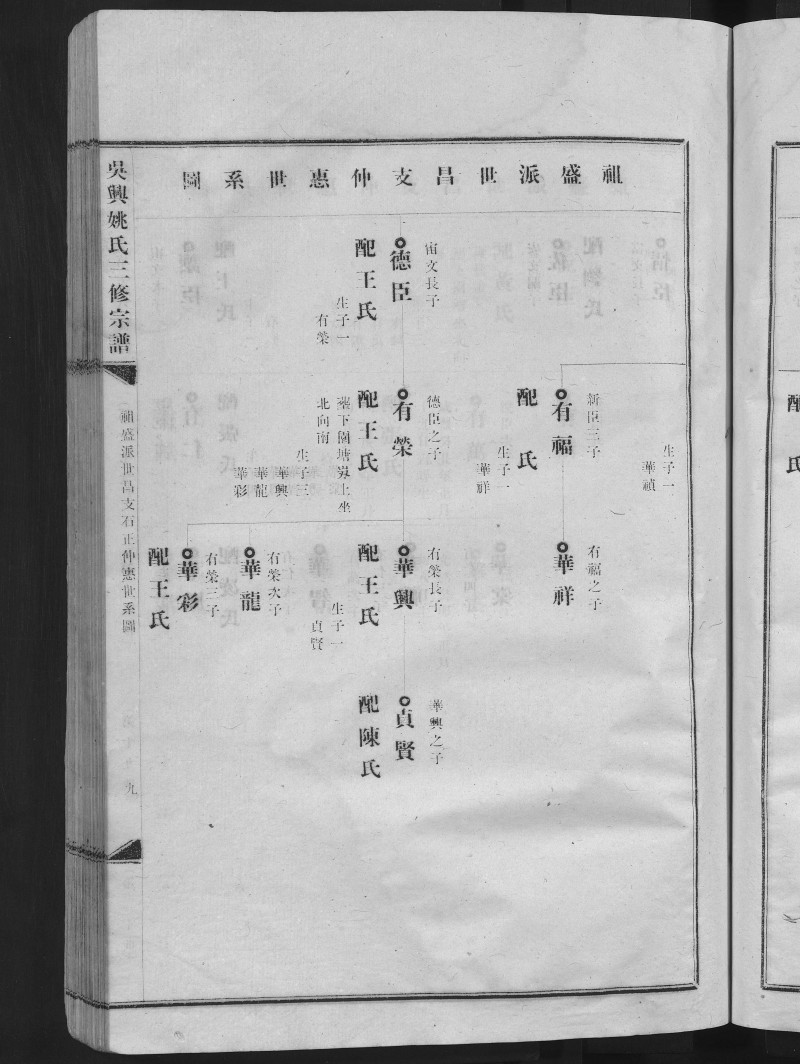 祖盛派世昌支仲惠世系圖
生子一
華禎
新臣三子
有福
配 氏
生子一
華祥
有福之子
華祥
宙文長子
德臣
配王氏
生子一
有榮
德臣之子
有榮
配王氏
葬下園塘㘭上坐
北向南
生子三
華興
華龍
華彩
有榮長子
華興
配王氏
生子一
貞賢
有榮次子
華龍
有榮三子
華彩
配王氏
華興之子
貞賢
配陳氏
吳興姚氏三修宗譜
祖盛派世昌支石正仲惠世系圖
九
配 氏